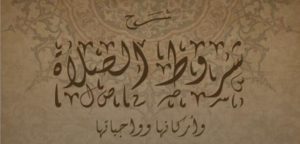 شرح
شروط الصلاة
وأركانها وواجباتها